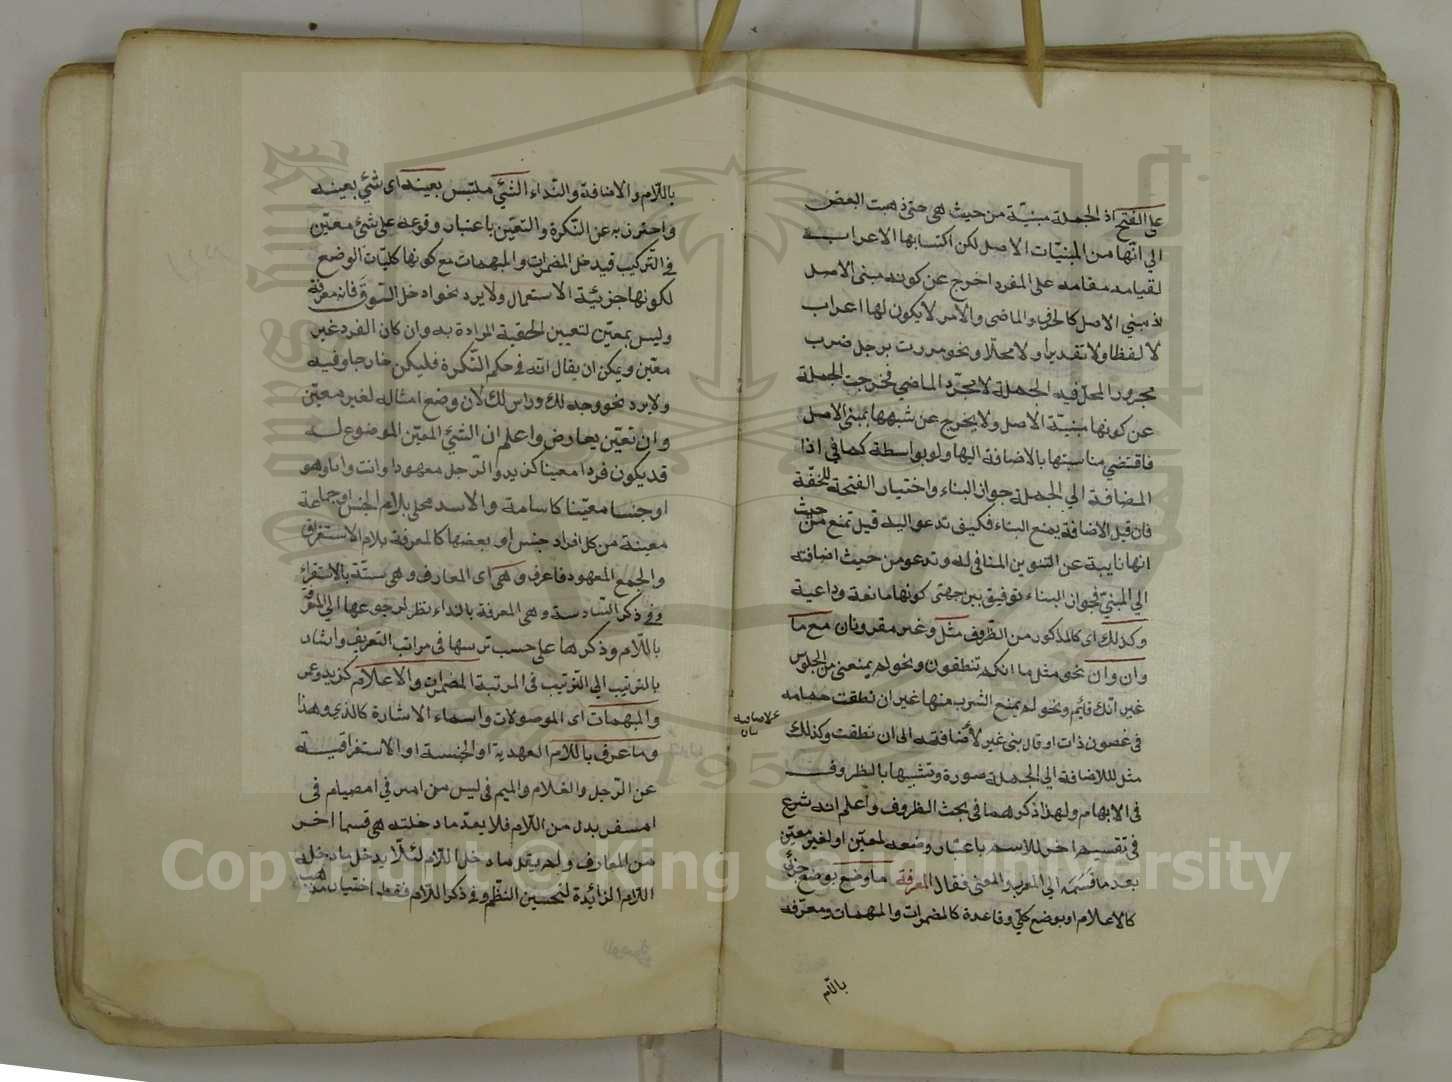 على الفتح اذ الجملة مبنية من حيث هى حتى ذهبت البعض
الي انها من المبنيات الاصل لكن اكتسابها الاعراب
لقيامه مقامه على المفرد اخرج عن كونه مبنى الاصل
اذ مبني الاصل كالحرف والماضى والامر لا يكون لها اعراب
لا لفظا ولا تقديرا ولا محلا ونحو مررت برجل ضرب
مجرور المحل فيه الجملة لا مجرد الماضي فخرجت الجملة
عن كونها مبنية الاصل ولا يخرج عن شبهها بمبنى الاصل
فاقتضي مناسبتها بالاضافة اليها ولو بواسطة كما في اذا
المضافة الي الجملة جواز البناء واختيار الفتحة للخفة
فان قيل الاضافة يمنع البناء فكيف تدعو اليه قيل تمنع من حيث
انها نايبة عن التنوين المنافى له وتدعو من حيث اضافته
الي المبني فجواز البناء توفيق بين جهتى كونها مانعة وداعية
وكذلك اى كالمذكور من الظروف مثل وغير مقرونان مع ما
وان وان نحو مثل ما انكم تنطقون ونحو لم يمنعنى من الجلوس
غير انك قائم ونحو لم يمنع الشرب منها غير ان نطقت حمامه
فى غصون ذات اوقال بنى غير لاضافته الى ان نطقت وكذلك
مثل للاضافة الي الجملة صورة وتشبيها بالظروف
فى الابهام ولهذا ذكرهما فى بحث الظروف واعلم انه شرع
فى تقسيم اخر للاسم باعتبار وضعه لمعين او لغير معين
بعد ما قسمه الي المعرب والمبنى فقال المعرفة ما وضع بوضع جزئي
كالاعلام او بوضع كلي وقاعدة كالمضمرات والمبهمات ومعرفه
باللام
باللام والاضافة والنداء الشئ ملتبس بعينه اى شئ بعينه
واحترز به عن النكرة والتعين باعتبار وقوعه على شئ معين
فى التركيب فيدخل المضمرات والمبهمات مع كونها كليات الوضع
لكونها جزئية الاستعمال ولا يرد نحو ادخل السوق فانه معرفة
وليس بمعين لتعيين الحقيقة المرادة به وان كان الفرد غير
معين ويمكن ان يقال انه فى حكم النكرة فليكن خارجا وفيه
ولا يرد نحو وجه لك وراس لك لان وضع امثاله لغير معين
وان تعين بعارض واعلم ان الشئ المعين الموضوع له
قد يكون فردا معينا كزيد والرجل معهودا وانت وانا وهو
او جنسا معينا كاسامة والاسد محلى بلام الجنس او جماعة
معينة من كل افراد جنس او بعضها كالمعرفة بلام الاستغراق
والجمع المعهود فاعرف وهى اى المعارف وهى ستة بالاستقراء
وفى ذكر السادسة وهى المعرفة بالنداء نظر لرجوعها الي المعرف
باللام وذكرها على حسب ترتيبها فى مراتب التعريف وانشاد
بالترتيب الي الترتيب فى المرتبة المضمرات والاعلام كزيد وعمر
والمبهمات اى الموصولات واسماء الاشارة كالذى وهذا
وما عرف باللام العهدية او الجنسة او الاستغراقية
عن الرجل والغلام والميم فى ليس من امبر فى امصيام فى
امسفر بدل من اللام فلا يعد ما دخلته هى قسما اخر
من المعارف ولم يقل ما دخلها اللام لئلا يدخل ما دخله
اللام الزائدة لتحسين النظم وفى ذكر اللام فقط اختيار مذهب
Copyright © King Saud University
1957